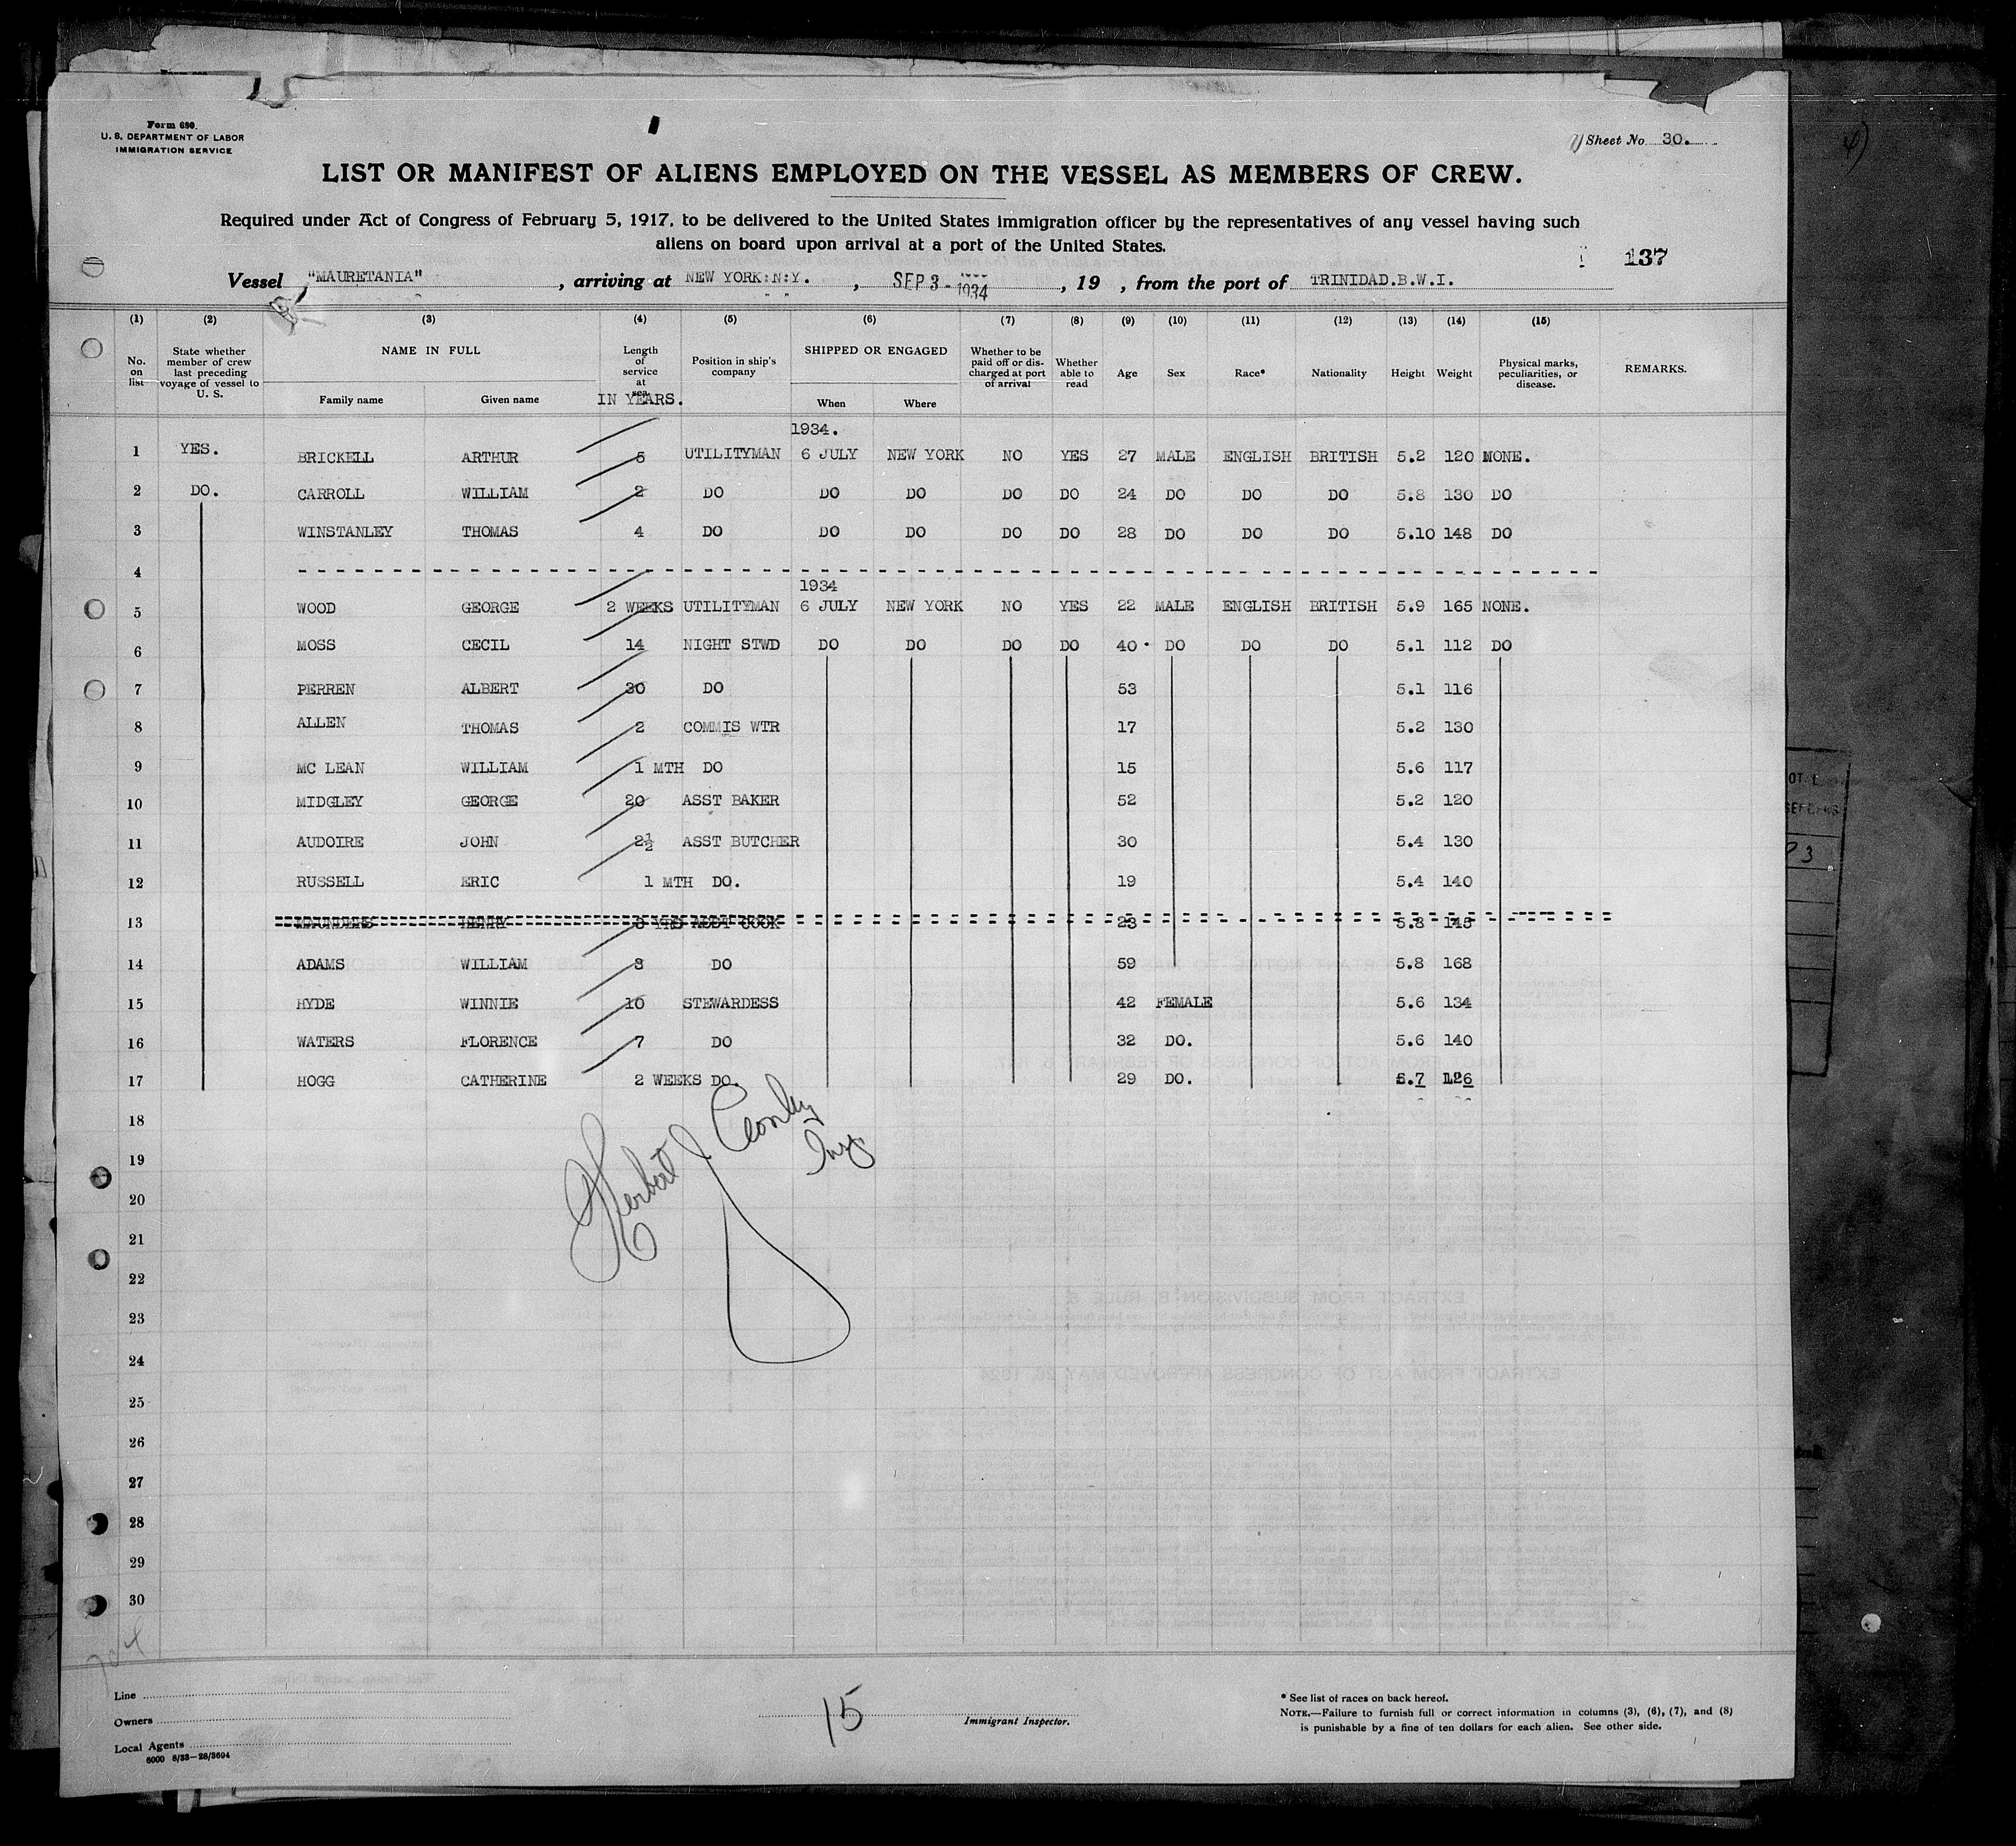 Form 680.
U. S. DEPARTMENT OF LABOR
IMMIGRATION SERVICE
Sheet No 30.
LIST OR MANIFEST OF ALIENS EMPLOYED ON THE VESSEL AS MEMBERS OF CREW.
Required under Act of Congress of February 5, 1917, to be delivered to the United States immigration officer by the representatives of any vessel having such
aliens on board upon arrival at a port of the United States.
137
Vessel "MAURETANIA" , arriving at NEW YORK:N:Y. , SEP 3 - 1934 , 19 , from the port of TRINIDAD.B.W.I.
(1) (2) (3) (4) (5) (6) (7) (8) (9) (10) (11) (12) (13) (14) (15)
No. on list
State whether member of crew last preceding voyage of vessel to U. S.
NAME IN FULL
Family name Given name
Length of service at sea
IN YEARS.
Position in ship's company
SHIPPED OR ENGAGED
When Where
Whether to be paid off or discharged at port of arrival
Whether able to read
Age Sex Race* Nationality Height Weight
Physical marks, peculiarities, or disease.
REMARKS.
1934.
1 YES. BRICKELL ARTHUR 5 UTILITYMAN 6 JULY NEW YORK NO YES 27 MALE ENGLISH BRITISH 5.2 120 NONE.
2 DO. CARROLL WILLIAM 2 DO DO DO DO DO 24 DO DO DO 5.8 130 DO
3 WINSTANLEY THOMAS 4 DO DO DO DO DO 28 DO DO DO 5.10 148 DO
4
1934
5 WOOD GEORGE 2 WEEKS UTILITYMAN 6 JULY NEW YORK NO YES 22 MALE ENGLISH BRITISH 5.9 165 NONE.
6 MOSS CECIL 14 NIGHT STWD DO DO DO DO 40 DO DO DO 5.1 112 DO
7 PERREN ALBERT 30 DO 53 5.1 116
8 ALLEN THOMAS 2 COMMIS WTR 17 5.2 130
9 MC LEAN WILLIAM 1 MTH DO 15 5.6 117
10 MIDGLEY GEORGE 20 ASST BAKER 52 5.2 120
11 AUDOIRE JOHN 2½ ASST BUTCHER 30 5.4 130
12 RUSSELL ERIC 1 MTH DO. 19 5.4 140
13 HENRY YRS ASST COOK 23 5.8 145
14 ADAMS WILLIAM 8 DO 59 5.8 168
15 HYDE WINNIE 10 STEWARDESS 42 FEMALE 5.6 134
16 WATERS FLORENCE 7 DO 32 DO. 5.6 140
17 HOGG CATHERINE 2 WEEKS DO. 29 DO. 5.7 126
18
19
20
21
22
23
24
25
26
27
28
29
30
Herbert J
Line
Owners
Local Agents
6000 8/33—28/3694
15
Immigrant Inspector.
* See list of races on back hereof.
NOTE.—Failure to furnish full or correct information in columns (3), (6), (7), and (8)
is punishable by a fine of ten dollars for each alien. See other side.